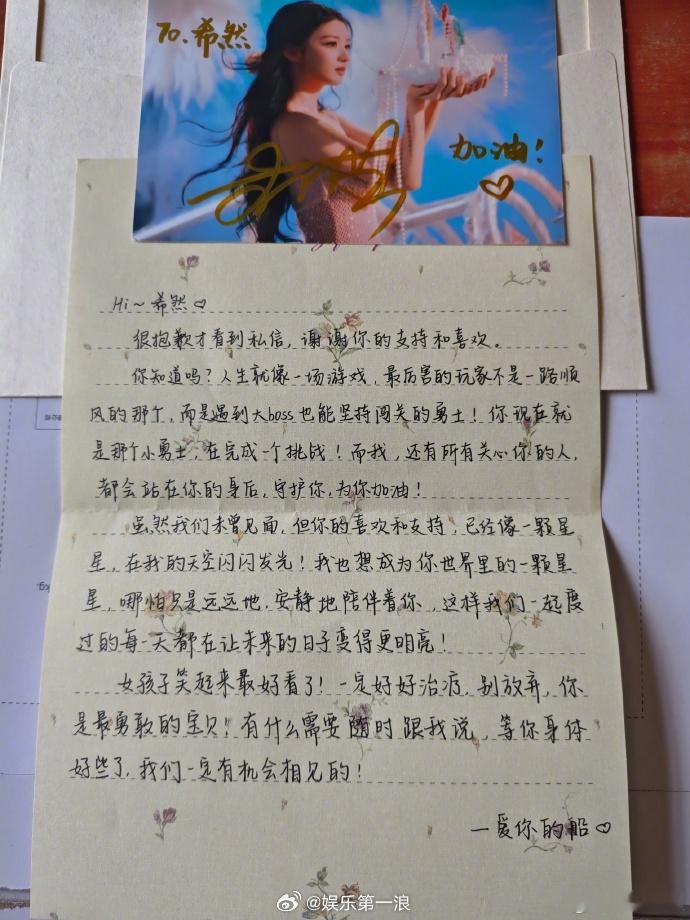 To.希然
加油！
Hi～希然♡
很抱歉才看到私信，谢谢你的支持和喜欢。
你知道吗？人生就像一场游戏，最厉害的玩家不是一路顺
风的那个，而是遇到大boss也能坚持闯关的勇士！你现在就
是那个小勇士，在完成一个挑战！而我，还有所有关心你的人，
都会站在你的身后，守护你，为你加油！
虽然我们未曾见面，但你的喜欢和支持，已经像一颗星
星，在我的天空闪闪发光！我也想成为你世界里的一颗星
星，哪怕只是远远地，安静地陪伴着你，这样我们一起度
过的每一天都在让未来的日子变得更明亮！
女孩子笑起来最好看了！一定好好治疗，别放弃，你
是最勇敢的宝贝！有什么需要随时跟我说，等你身体
好些了，我们一定有机会相见的！
—爱你的船♡
kg.
@娱乐第一浪